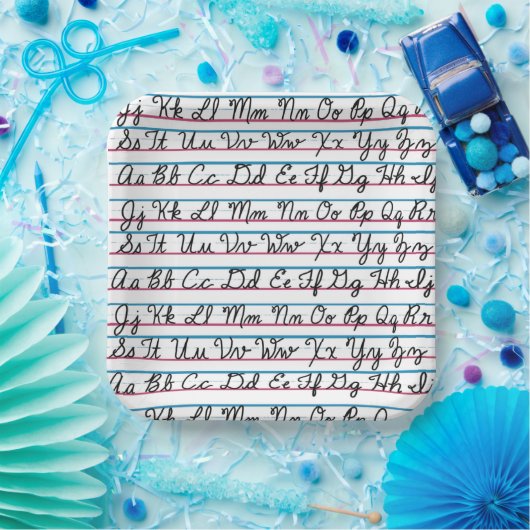 Jj Kk Ll Mm Nn Oo Pp Qq
Ss Tt Uu Vv Ww Xx Yy Zz
Aa Bb Cc Dd Ee Ff Gg Hh Ii
Jj Kk Ll Mm Nn Oo Pp Qq Rr
Ss Tt Uu Vv Ww Xx Yy Zz
Aa Bb Cc Dd Ee Ff Gg Hh Ii
Jj Kk Ll Mm Nn Oo Pp Qq Rr
Ss Tt Uu Vv Ww Xx Yy Zz
Aa Bb Cc Dd Ee Ff Gg Hh Ii
Kk Ll Mm Nn Oo Pp Q